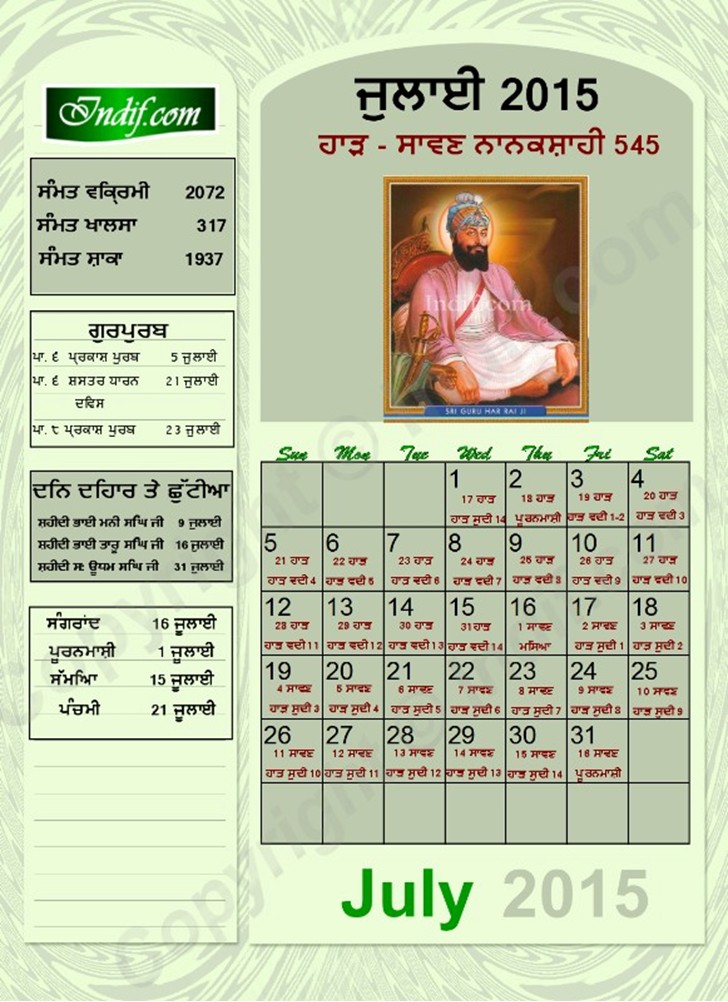 Indif.com
ਸੰਮਤ ਵਕ੍ਰਿਮੀ 2072
ਸੰਮਤ ਖਾਲਸਾ 317
ਸੰਮਤ ਸ਼ਾਕਾ 1937
ਗੁਰਪੁਰਬ
ਪਾ. ੬ ਪ੍ਰਕਾਸ਼ ਪੁਰਬ 5 ਜੁਲਾਈ
ਪਾ. ੬ ਸ਼ਸਤਰ ਧਾਰਨ 21 ਜੁਲਾਈ
ਦਵਿਸ
ਪਾ. ੮ ਪ੍ਰਕਾਸ਼ ਪੁਰਬ 23 ਜੁਲਾਈ
ਦਨਿ ਦਹਿਾਰ ਤੇ ਛੁੱਟੀਆ
ਸ਼ਹੀਦੀ ਭਾਈ ਮਨੀ ਸਘਿ ਜੀ 9 ਜੁਲਾਈ
ਸ਼ਹੀਦੀ ਭਾਈ ਤਾਰੂ ਸਘਿ ਜੀ 16 ਜੁਲਾਈ
ਸ਼ਹੀਦੀ ਸ: ਊਧਮ ਸਘਿ ਜੀ 31 ਜੁਲਾਈ
ਸੰਗਰਾਂਦ 16 ਜੂਲਾਈ
ਪੂਰਨਮਾਸ਼ੀ 1 ਜੂਲਾਈ
ਸੱਮਆਿ 15 ਜੂਲਾਈ
ਪੰਚਮੀ 21 ਜੂਲਾਈ
ਜੁਲਾਈ 2015
ਹਾੜ - ਸਾਵਣ ਨਾਨਕਸ਼ਾਹੀ 545
Indif.com
SRI GURU HAR RAI JI
Sun Mon Tue Wed Thu Fri Sat
1 2 3 4
17 ਹਾੜ 18 ਹਾੜ 19 ਹਾੜ 20 ਹਾੜ
ਹਾੜ ਸੁਦੀ 14 ਪੂਰਨਮਾਸ਼ੀ ਹਾੜ ਵਦੀ 1-2 ਹਾੜ ਵਦੀ 3
5 6 7 8 9 10 11
21 ਹਾੜ 22 ਹਾੜ 23 ਹਾੜ 24 ਹਾੜ 25 ਹਾੜ 26 ਹਾੜ 27 ਹਾੜ
ਹਾੜ ਵਦੀ 4 ਹਾੜ ਵਦੀ 5 ਹਾੜ ਵਦੀ 6 ਹਾੜ ਵਦੀ 7 ਹਾੜ ਵਦੀ 8 ਹਾੜ ਵਦੀ 9 ਹਾੜ ਵਦੀ 10
12 13 14 15 16 17 18
28 ਹਾੜ 29 ਹਾੜ 30 ਹਾੜ 31 ਹਾੜ 1 ਸਾਵਣ 2 ਸਾਵਣ 3 ਸਾਵਣ
ਹਾੜ ਵਦੀ 11 ਹਾੜ ਵਦੀ 12 ਹਾੜ ਵਦੀ 13 ਹਾੜ ਵਦੀ 14 ਮਸਿਆ ਹਾੜ ਸੁਦੀ 1 ਹਾੜ ਸੁਦੀ 2
19 20 21 22 23 24 25
4 ਸਾਵਣ 5 ਸਾਵਣ 6 ਸਾਵਣ 7 ਸਾਵਣ 8 ਸਾਵਣ 9 ਸਾਵਣ 10 ਸਾਵਣ
ਹਾੜ ਸੁਦੀ 3 ਹਾੜ ਸੁਦੀ 4 ਹਾੜ ਸੁਦੀ 5 ਹਾੜ ਸੁਦੀ 6 ਹਾੜ ਸੁਦੀ 7 ਹਾੜ ਸੁਦੀ 8 ਹਾੜ ਸੁਦੀ 9
26 27 28 29 30 31
11 ਸਾਵਣ 12 ਸਾਵਣ 13 ਸਾਵਣ 14 ਸਾਵਣ 15 ਸਾਵਣ 16 ਸਾਵਣ
ਹਾੜ ਸੁਦੀ 10 ਹਾੜ ਸੁਦੀ 11 ਹਾੜ ਸੁਦੀ 12 ਹਾੜ ਸੁਦੀ 13 ਹਾੜ ਸੁਦੀ 14 ਪੂਰਨਮਾਸ਼ੀ
July 2015